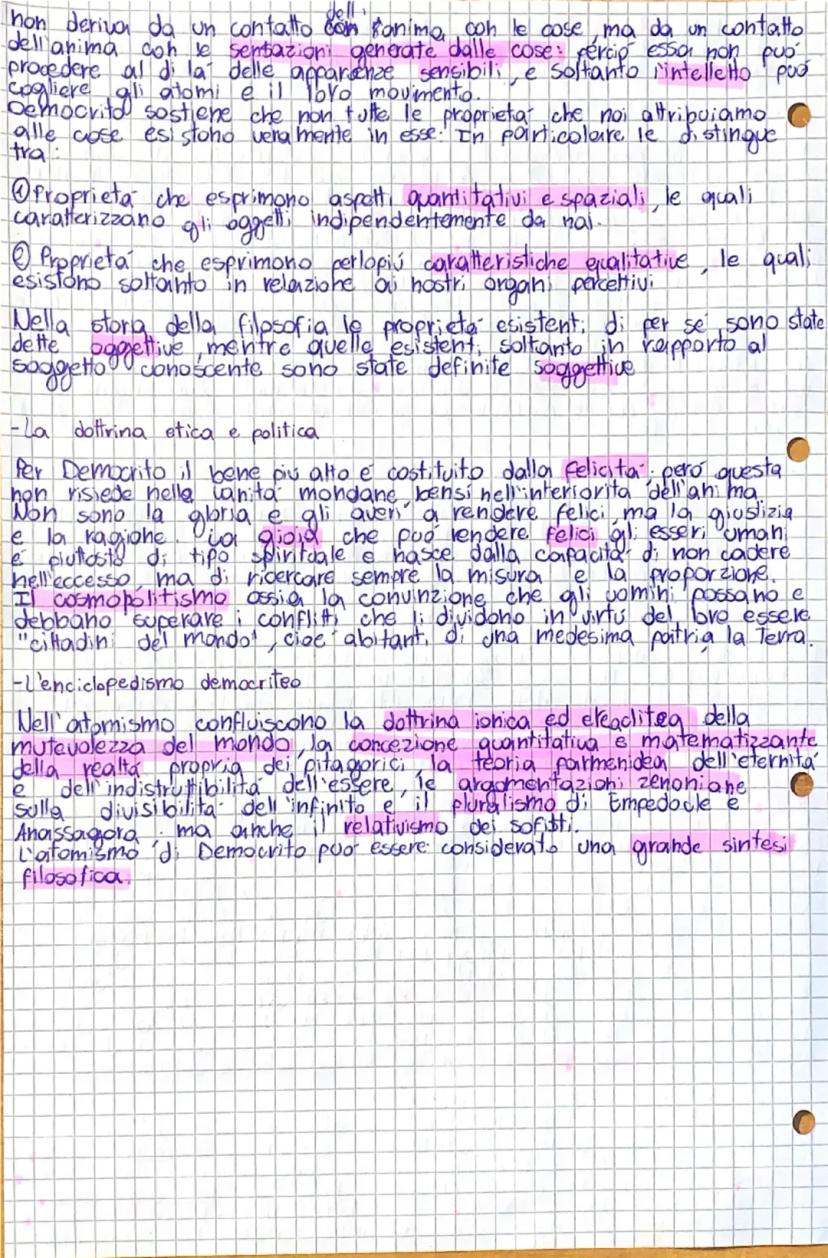 non deriva da un contatto dell' con l'anima con le cose, ma da un contatto
dell'anima con le sensazioni generate dalle cose: perciò essa non può
procedere al di là delle apparenze sensibili, e soltanto l'intelletto può
cogliere gli atomi e il loro movimento.
Democrito sostiene che non tutte le proprietà che noi attribuiamo
alle cose esistono veramente in esse. In particolare le distingue
tra:
① Proprietà che esprimono aspetti quantitativi e spaziali, le quali
caratterizzano gli oggetti indipendentemente da noi.
② Proprietà che esprimono perlopiù caratteristiche qualitative, le quali
esistono soltanto in relazione ai nostri organi percettivi
Nella storia della filosofia le proprietà esistenti di per sé sono state
dette oggettive, mentre quelle esistenti soltanto in rapporto al
soggetto conoscente sono state definite soggettive
-La dottrina etica e politica
Per Democrito il bene più alto è costituito dalla felicità; però questa
non risiede nelle vanità mondane, bensì nell'interiorità dell'anima.
Non sono la gloria e gli averi a rendere felici, ma la giustizia
e la ragione. La gioia che può rendere felici gli esseri umani
è piuttosto di tipo spirituale e nasce dalla capacità di non cadere
nell'eccesso, ma di ricercare sempre la misura e la proporzione.
Il cosmopolitismo ossia la convinzione che gli uomini possano e
debbano superare i conflitti che li dividono in virtù del loro essere
"cittadini del mondo", cioè abitanti di una medesima patria, la Terra.
-L'enciclopedismo democriteo
Nell'atomismo confluiscono la dottrina ionica ed eraclitea della
mutevolezza del mondo, la concezione quantitativa e matematizzante
della realtà propria dei pitagorici, la teoria parmenidea dell'eternità
e dell'indistruttibilità dell'essere, le argomentazioni zenoniane
sulla divisibilità dell'infinito e il pluralismo di Empedocle e
Anassagora, ma anche il relativismo dei sofisti.
L'atomismo di Democrito può essere considerato una grande sintesi
filosofica.